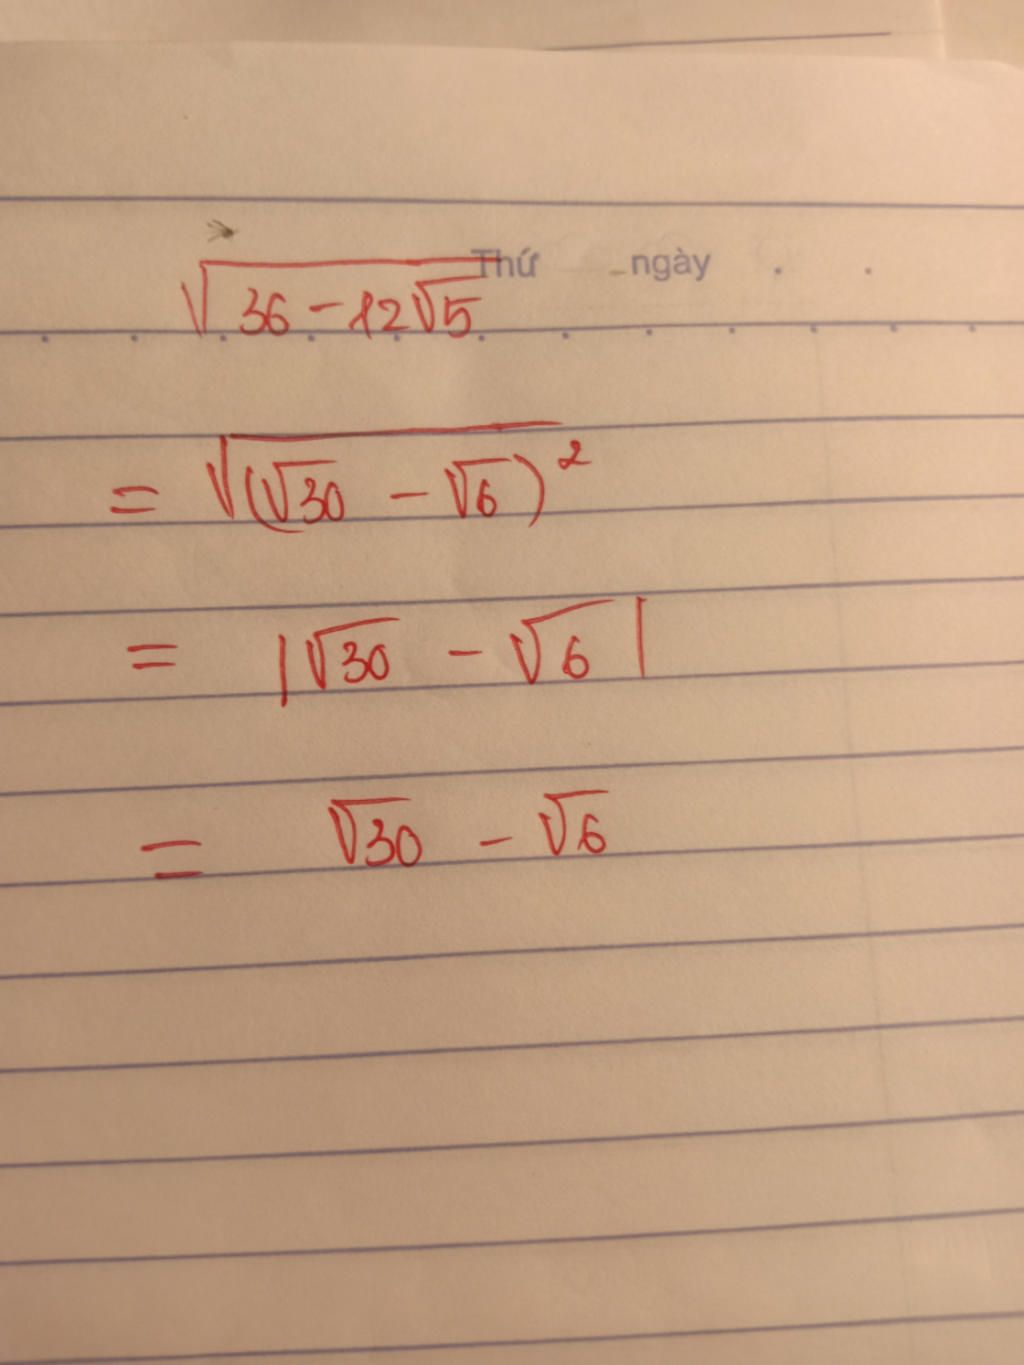 Thứ ngày . .
√(36 - 12√5)
= √((√30 - √6)²)
= |√30 - √6|
= √30 - √6